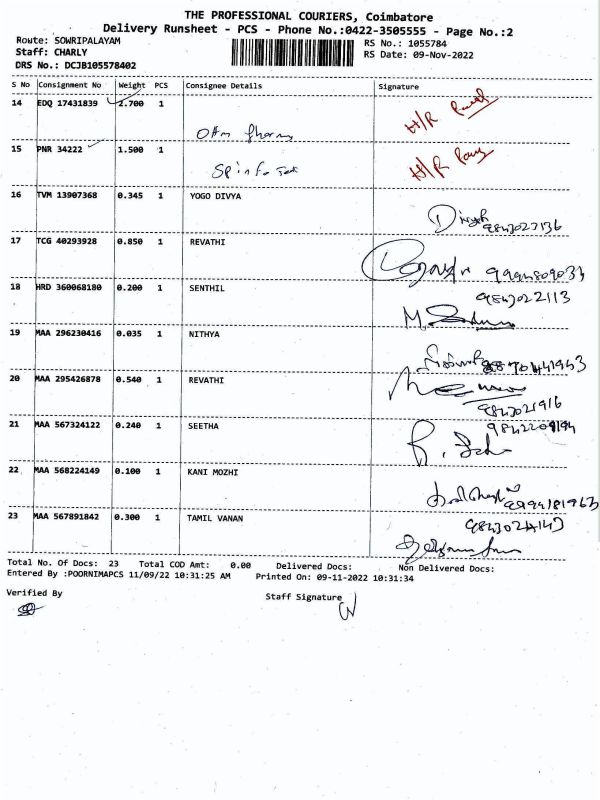 THE PROFESSIONAL COURIERS, Coimbatore
Delivery Runsheet - PCS - Phone No.:0422-3505555 - Page No.:2
Route: SOWRIPALAYAM
RS No.: 1055784
Staff: CHARLY
RS Date: 09-Nov-2022
DRS No.: DCJB105578402
S No Consignment No Weight PCS Consignee Details Signature
14 EDQ 17431839 2.700 1
H/R
15 PNR 34222 1.500 1
H/R
16 TVM 13907368 0.345 1 YOGO DIVYA
9843027136
17 TCG 40293928 0.850 1 REVATHI
18 HRD 360068180 0.200 1 SENTHIL
9843022113
19 MAA 296230416 0.035 1 NITHYA
20 MAA 295426878 0.540 1 REVATHI
9843021916
21 MAA 567324122 0.240 1 SEETHA
22 MAA 568224149 0.100 1 KANI MOZHI
9994181963
23 MAA 567891842 0.300 1 TAMIL VANAN
Total No. Of Docs: 23 Total COD Amt: 0.00 Delivered Docs: Non Delivered Docs:
Entered By :POORNIMAPCS 11/09/22 10:31:25 AM Printed On: 09-11-2022 10:31:34
Verified By
Staff Signature